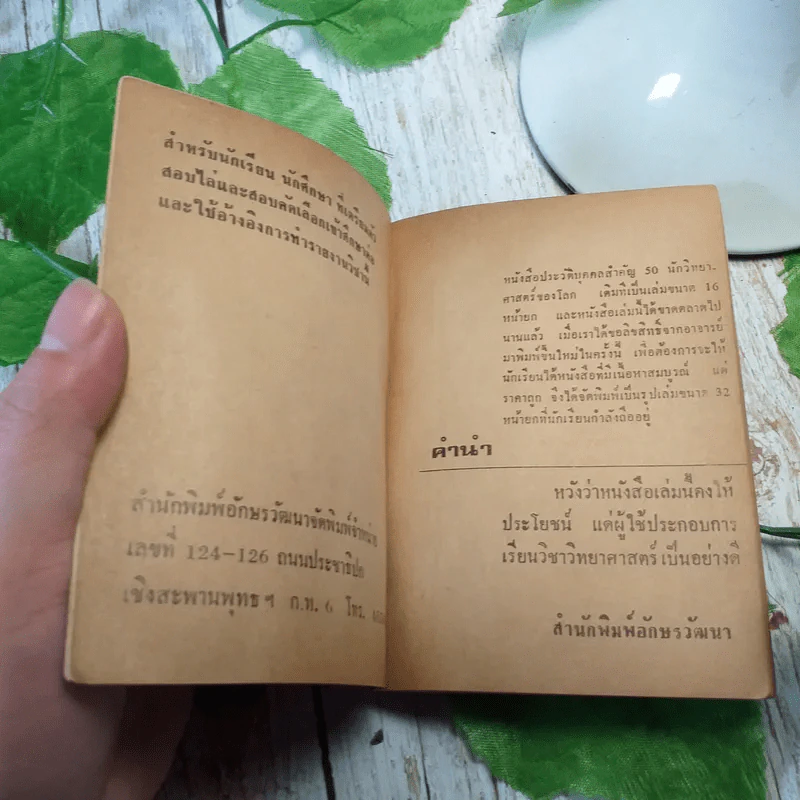 สำหรับนักเรียน นักศึกษา ที่เตรียมตัว
สอบไล่และสอบคัดเลือกเข้าศึกษาต่อ
และใช้อ้างอิงการทำรายงานวิชานี้
สำนักพิมพ์อักษรวัฒนาจัดพิมพ์จำหน่าย
เลขที่ 124-126 ถนนประชาธิปก
เชิงสะพานพุทธฯ ก.ท. 6 โทร.
หนังสือประวัติบุคคลสำคัญ 50 นักวิทยา-
ศาสตร์ของโลก เดิมที่เป็นเล่มขนาด 16
หน้ายก และหนังสือเล่มนี้ได้ขาดตลาดไป
นานแล้ว เมื่อเราได้ขอลิขสิทธิ์จากอาจารย์
มาพิมพ์ขึ้นใหม่ในครั้งนี้ เพื่อต้องการจะให้
นักเรียนได้หนังสือที่มีเนื้อหาสมบูรณ์ แต่
ราคาถูก จึงได้จัดพิมพ์เป็นรูปเล่มขนาด 32
หน้ายกที่นักเรียนกำลังถืออยู่
คำนำ
หวังว่าหนังสือเล่มนี้คงให้
ประโยชน์ แด่ผู้ใช้ประกอบการ
เรียนวิชาวิทยาศาสตร์ เป็นอย่างดี
สำนักพิมพ์อักษรวัฒนา